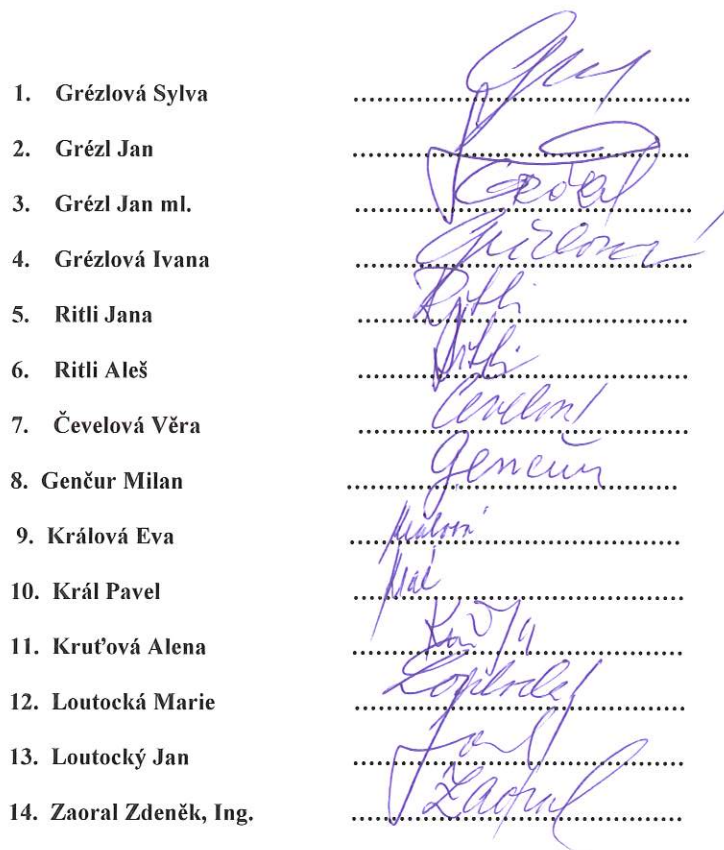 1. Grézlová Sylva ........................................
2. Grézl Jan ........................................
3. Grézl Jan ml. ........................................
4. Grézlová Ivana ........................................
5. Ritli Jana ........................................ Ritli
6. Ritli Aleš ........................................ Ritli
7. Čevelová Věra ........................................
8. Genčur Milan ........................................ Genčur
9. Králová Eva ........................................ Králová
10. Král Pavel ........................................ Král
11. Kruťová Alena ........................................
12. Loutocká Marie ........................................
13. Loutocký Jan ........................................
14. Zaoral Zdeněk, Ing. ........................................ Zaoral